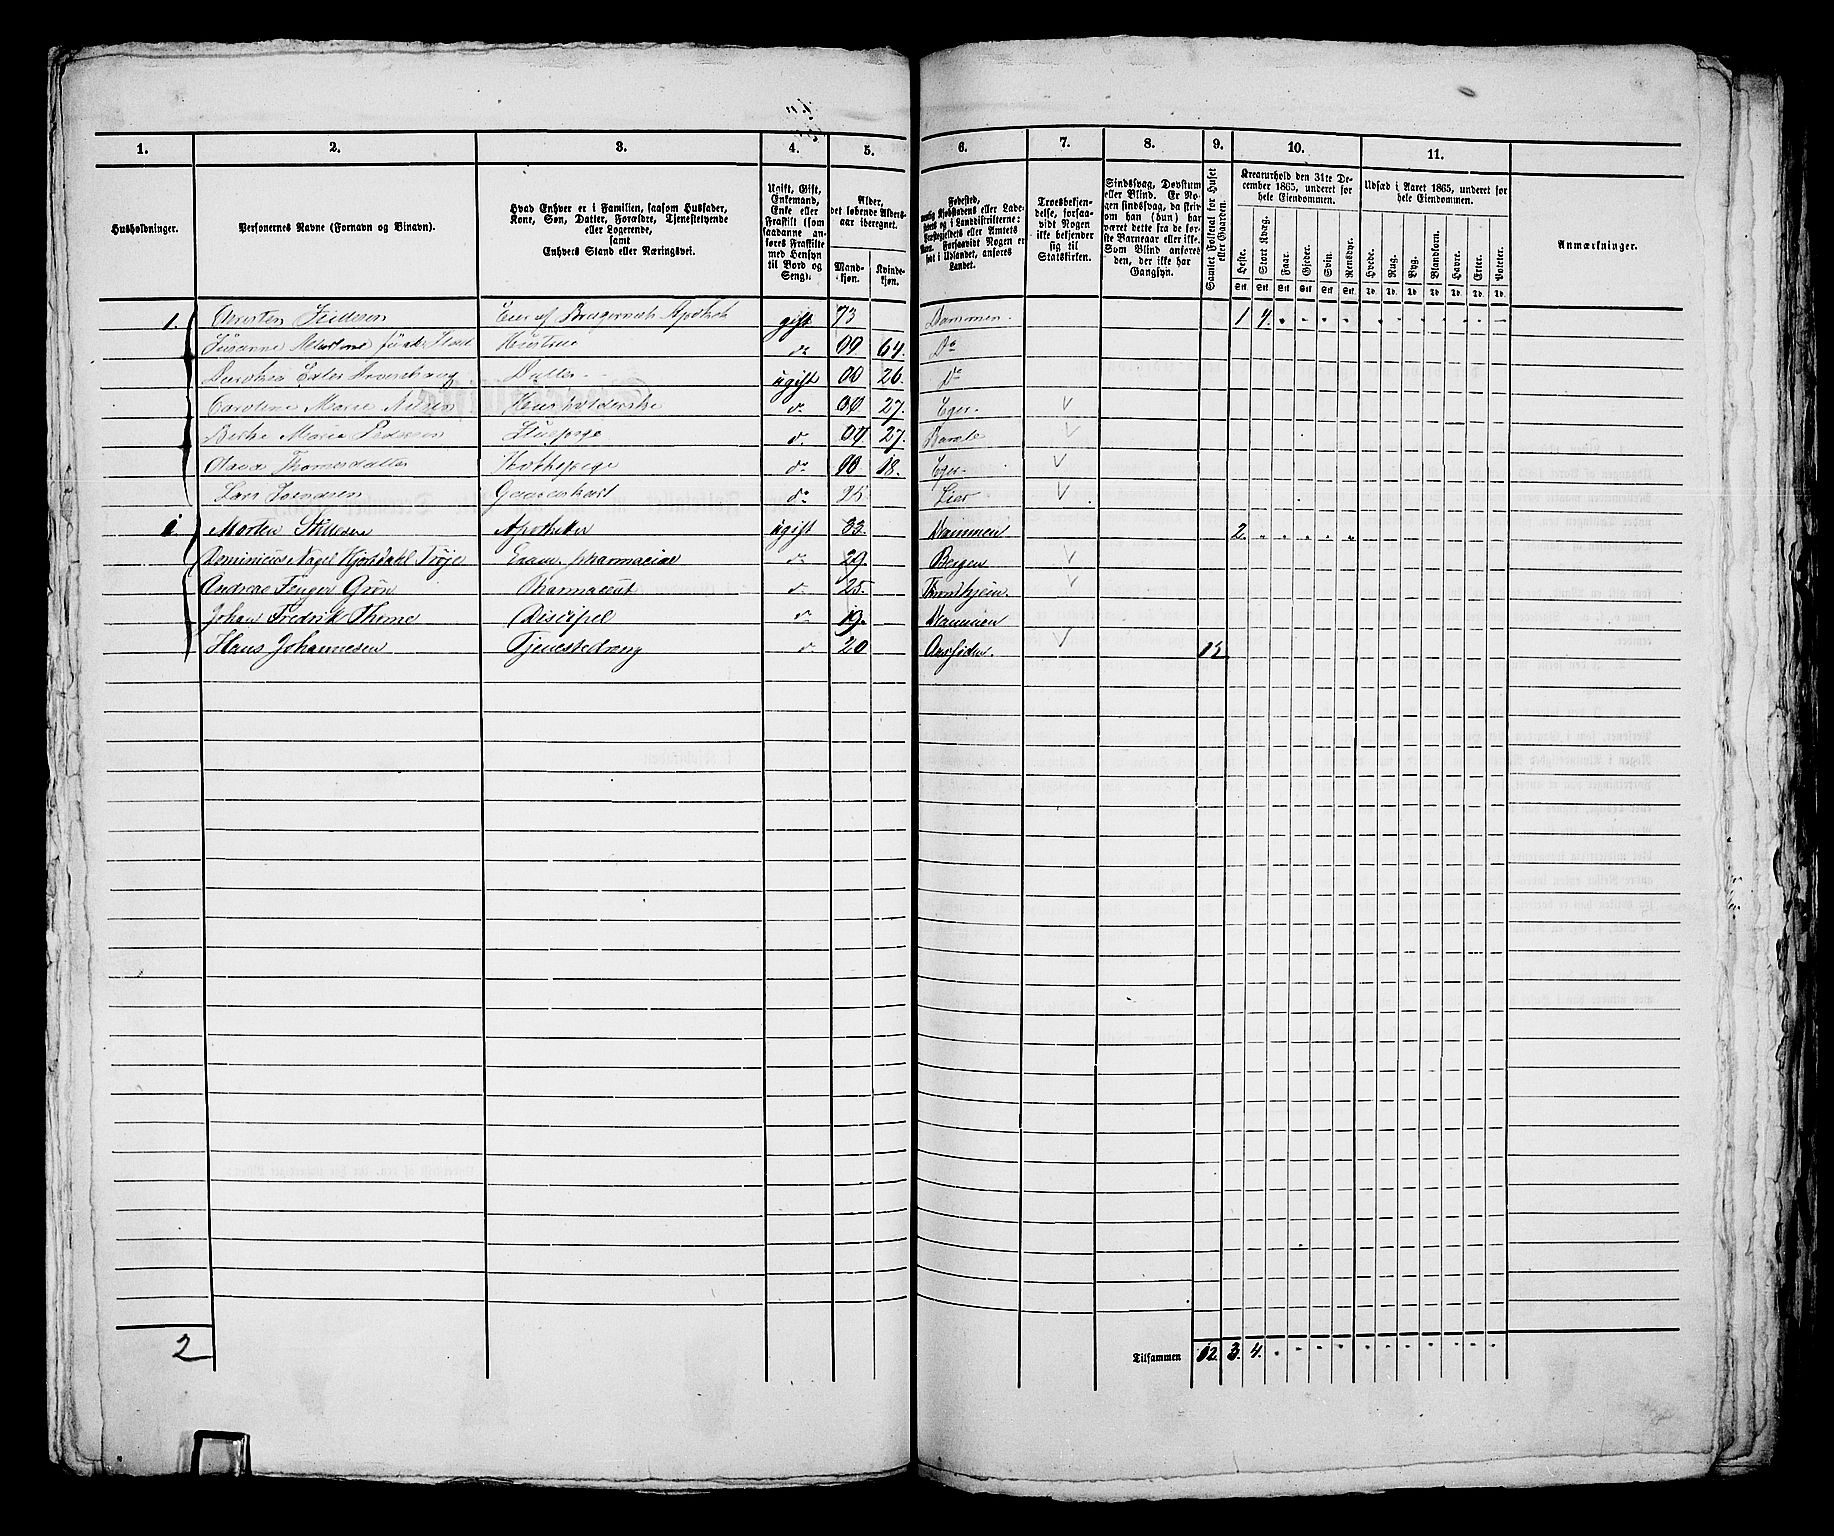 1. 2. 3. 4. 5. 6. 7. 8. 9. 10. 11.
Husholdninger.
Personernes Navne (Fornavn og Binavn).
Hvad Enhver er i Familien, saasom Husfader,
Kone, Søn, Datter, Forældre, Tjenestetyende
eller Logerende,
samt
Enhvers Stand eller Næringsvei.
Ugift, Gift,
Enkemand,
Enke eller
Fraskilt (som
saadanne an-
føres Fraskilte
med Hensyn
til Bord og
Seng).
Alder,
det løbende Alders-
aar iberegnet.
Mand-
kjøn.
Kvinde-
kjøn.
Fødested,
Kjøbstadens eller Lade-
stedets og i Landdistrikterne:
Præstegjeldets eller Amtets
Navn. Forsaavidt Nogen er
født i Udlandet, anføres
Landet.
Troesbekjen-
delse, forsaa-
vidt Nogen
ikke bekjender
sig til
Statskirken.
Sindssvag, Døvstum
eller Blind. Er No-
gen sindssvag, da skriv
om han (hun) har
været dette fra de før-
ste Barneaar eller ikke.
Som Blind anføres
den, der ikke har
Gangsyn.
Samlet Folketal for Huset
eller Gaarden.
Kreaturhold den 31te De-
cember 1865, underet for
hele Eiendommen.
Heste. Stort Kvæg. Faar. Gjeder. Svin. Rensdyr.
St. St. St. St. St. St.
Udsæd i Aaret 1865, underet for
hele Eiendommen.
Hvede. Rug. Byg. Blandkorn. Havre. Erter. Poteter.
Td. Td. Td. Td. Td. Td. Td.
Anmærkninger.
1. Christen Stillesen Eier af Bragernæs Apothek gift 73 Drammen. 1 4.
Susanne Hustrue do 00 64. Do
Dorothea Datter ugift 00 26. Do
Caroline Marie Nilsen Huusholderske do 00 27. Eger. V
Berthe Marie Pedersen Stuepige do 00 27. V
Olava Thomesdatter Kokkepige do 00 18. Eger. V
Lars Gaardskarl do 25 Lier V
1. Morten Stillesen Apotheker ugift 33. Drammen 2.
Dominicus Nagel Hjorsdahl Trøje Exam. pharmaciæ do 29. Bergen V
Andreas Fenger Grøn Pharmaceut do 25. Throndhjem. V
Johan Fredrik Thime Discipel do 19. Drammen
Hans Johannesen Tjenestedreng do 20 V 12
2
Tilsammen 12. 3. 4.